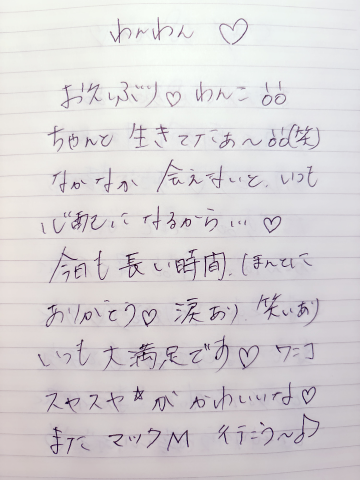 わんわん ♡
お久しぶり♡ わんこ öö
ちゃんと 生きてたぁ〜öö(笑)
なかなか 会えないと、いつも
心配に なるから… ♡
今日も 長い時間、ほんとに
ありがとう♡ 涙あり 笑いあり
いつも 大満足です♡ ワンコ
スヤスヤ☆が かわいいな♡
また マックM 行こう〜♪